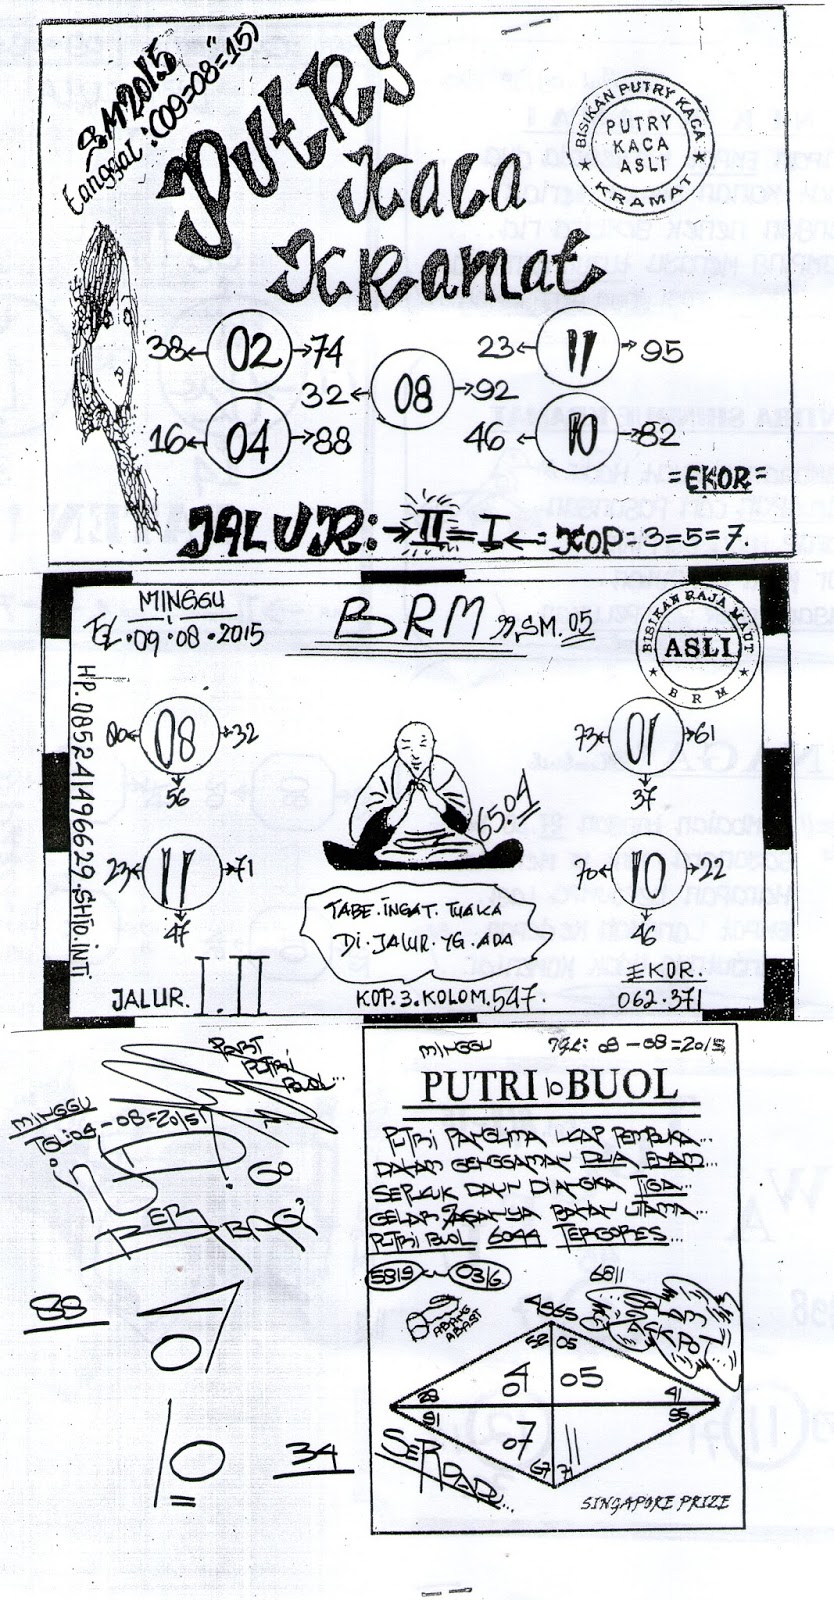 SM2015
Tanggal:(09=08=15)
PUTRY
KACA
KRAMAT
BISIKAN PUTRY KACA
PUTRY
KACA
ASLI
KRAMAT
38 02 74
23 11 95
32 08 92
16 04 88
46 10 82
=EKOR=
JALUR: II=I :KOP=3=5=7.
MINGGU
TGL.09.08.2015
BRM 99,SM.05
BISIKAN RAJA MAUT
ASLI
BRM
HP.085241496629.SHIO.INTI
08 32
56
73 01 61
37
65.04
23 11 71
47
70 10 22
46
TABE.INGAT.TUAKA
DI.JALUR.YG.ADA
JALUR. I.II
KOP.3.KOLOM.547.
EKOR.
062.371
PART
PUTRI
BUOL...
MINGGU
GO
BER
BAGI
88
04
10
34
MINGGU TGL: 09-08=2015
PUTRI 10 BUOL
PUTRI PANGLIMA UCAP PEMBUKA...
DALAM GENGGAMAN DUA ENAM...
SERUUK DAUN DIANGKA TIGA...
UTAMA...
PUTRI BUOL 6044 TERGORES...
5819 03/6
6811
4665
52 05
04 05
28 41
91 95
07 11
67 71
SINGAPORE PRIZE